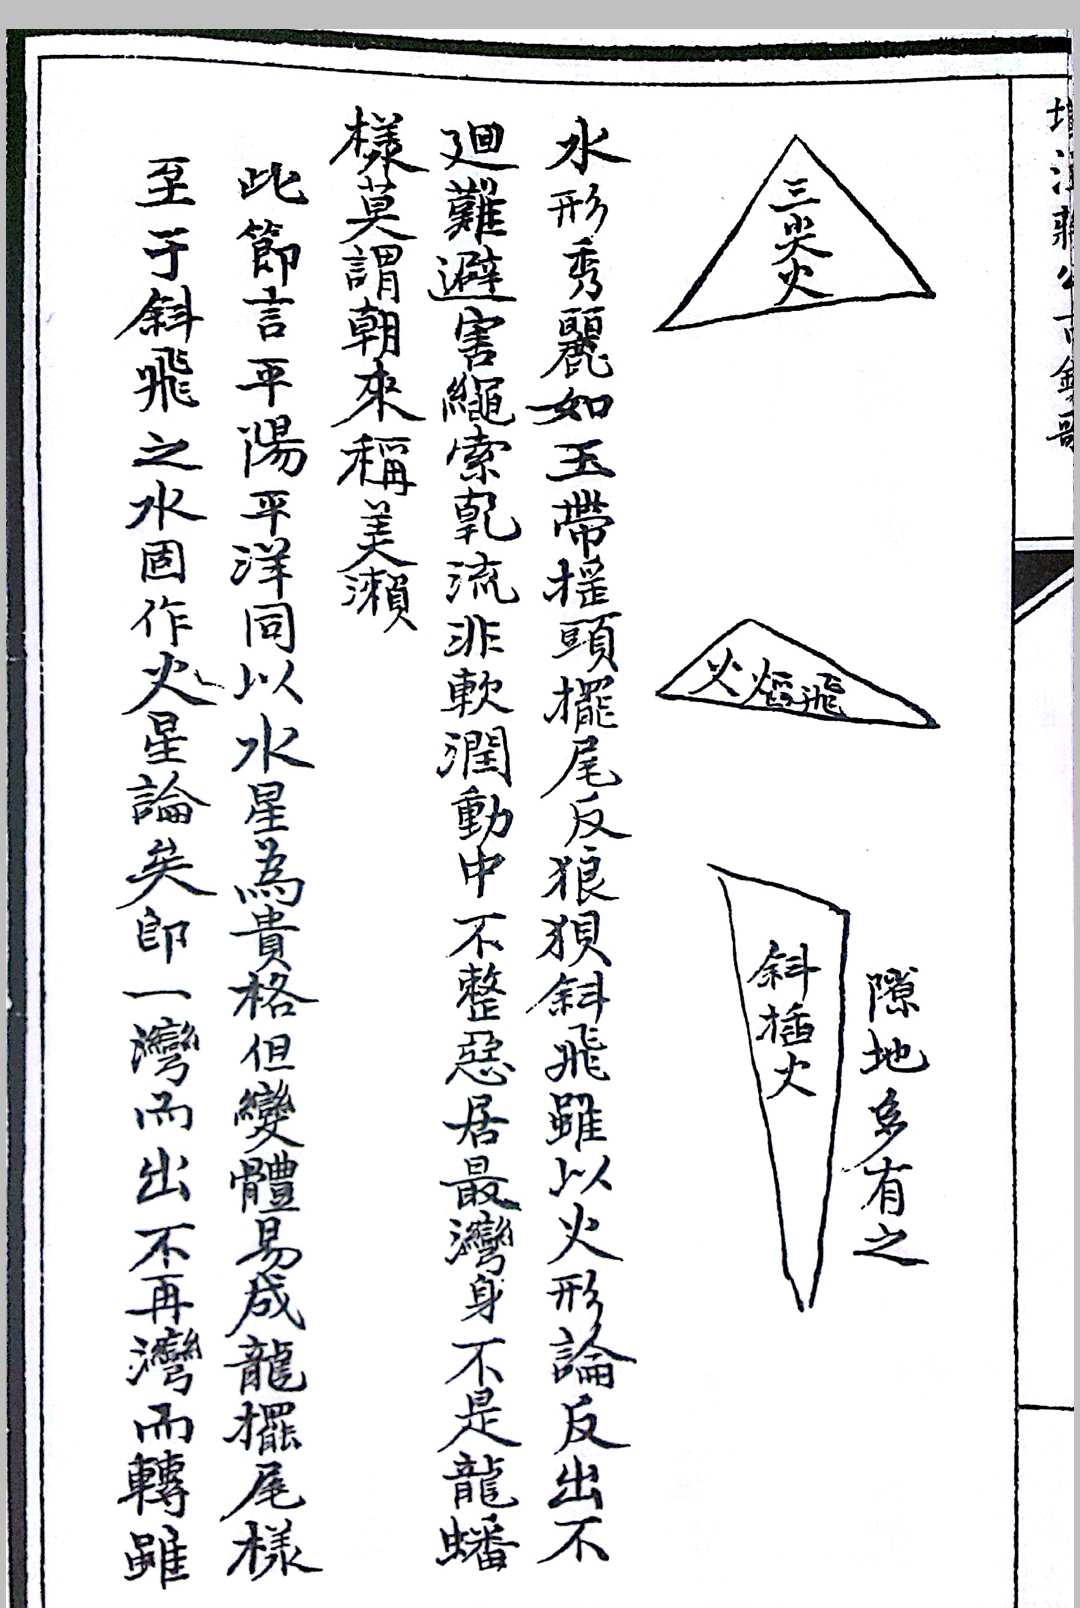 三尖火
飛焰火
隙地多有之
斜插火
水形秀麗如玉帶搖頭擺尾反狼狽斜飛雖以火形論反出不
廻難避害繩索乾流非軟潤動中不整惡居最灣身不是龍蟠
樣莫謂朝來稱美瀨
此節言平陽平洋同以水星為貴格但變體易成龍擺尾樣
至于斜飛之水固作火星論矣即一灣而出不再灣而轉雖